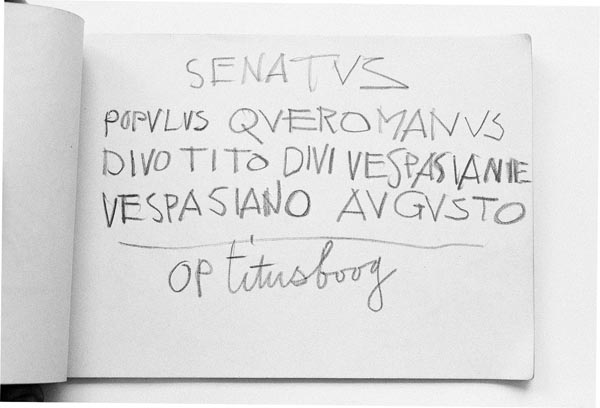 SENATVS
POPVLVS QVEROMANVS
DIVO TITO DIVI VESPASIANIE
VESPASIANO AVGVSTO
OP titusboog